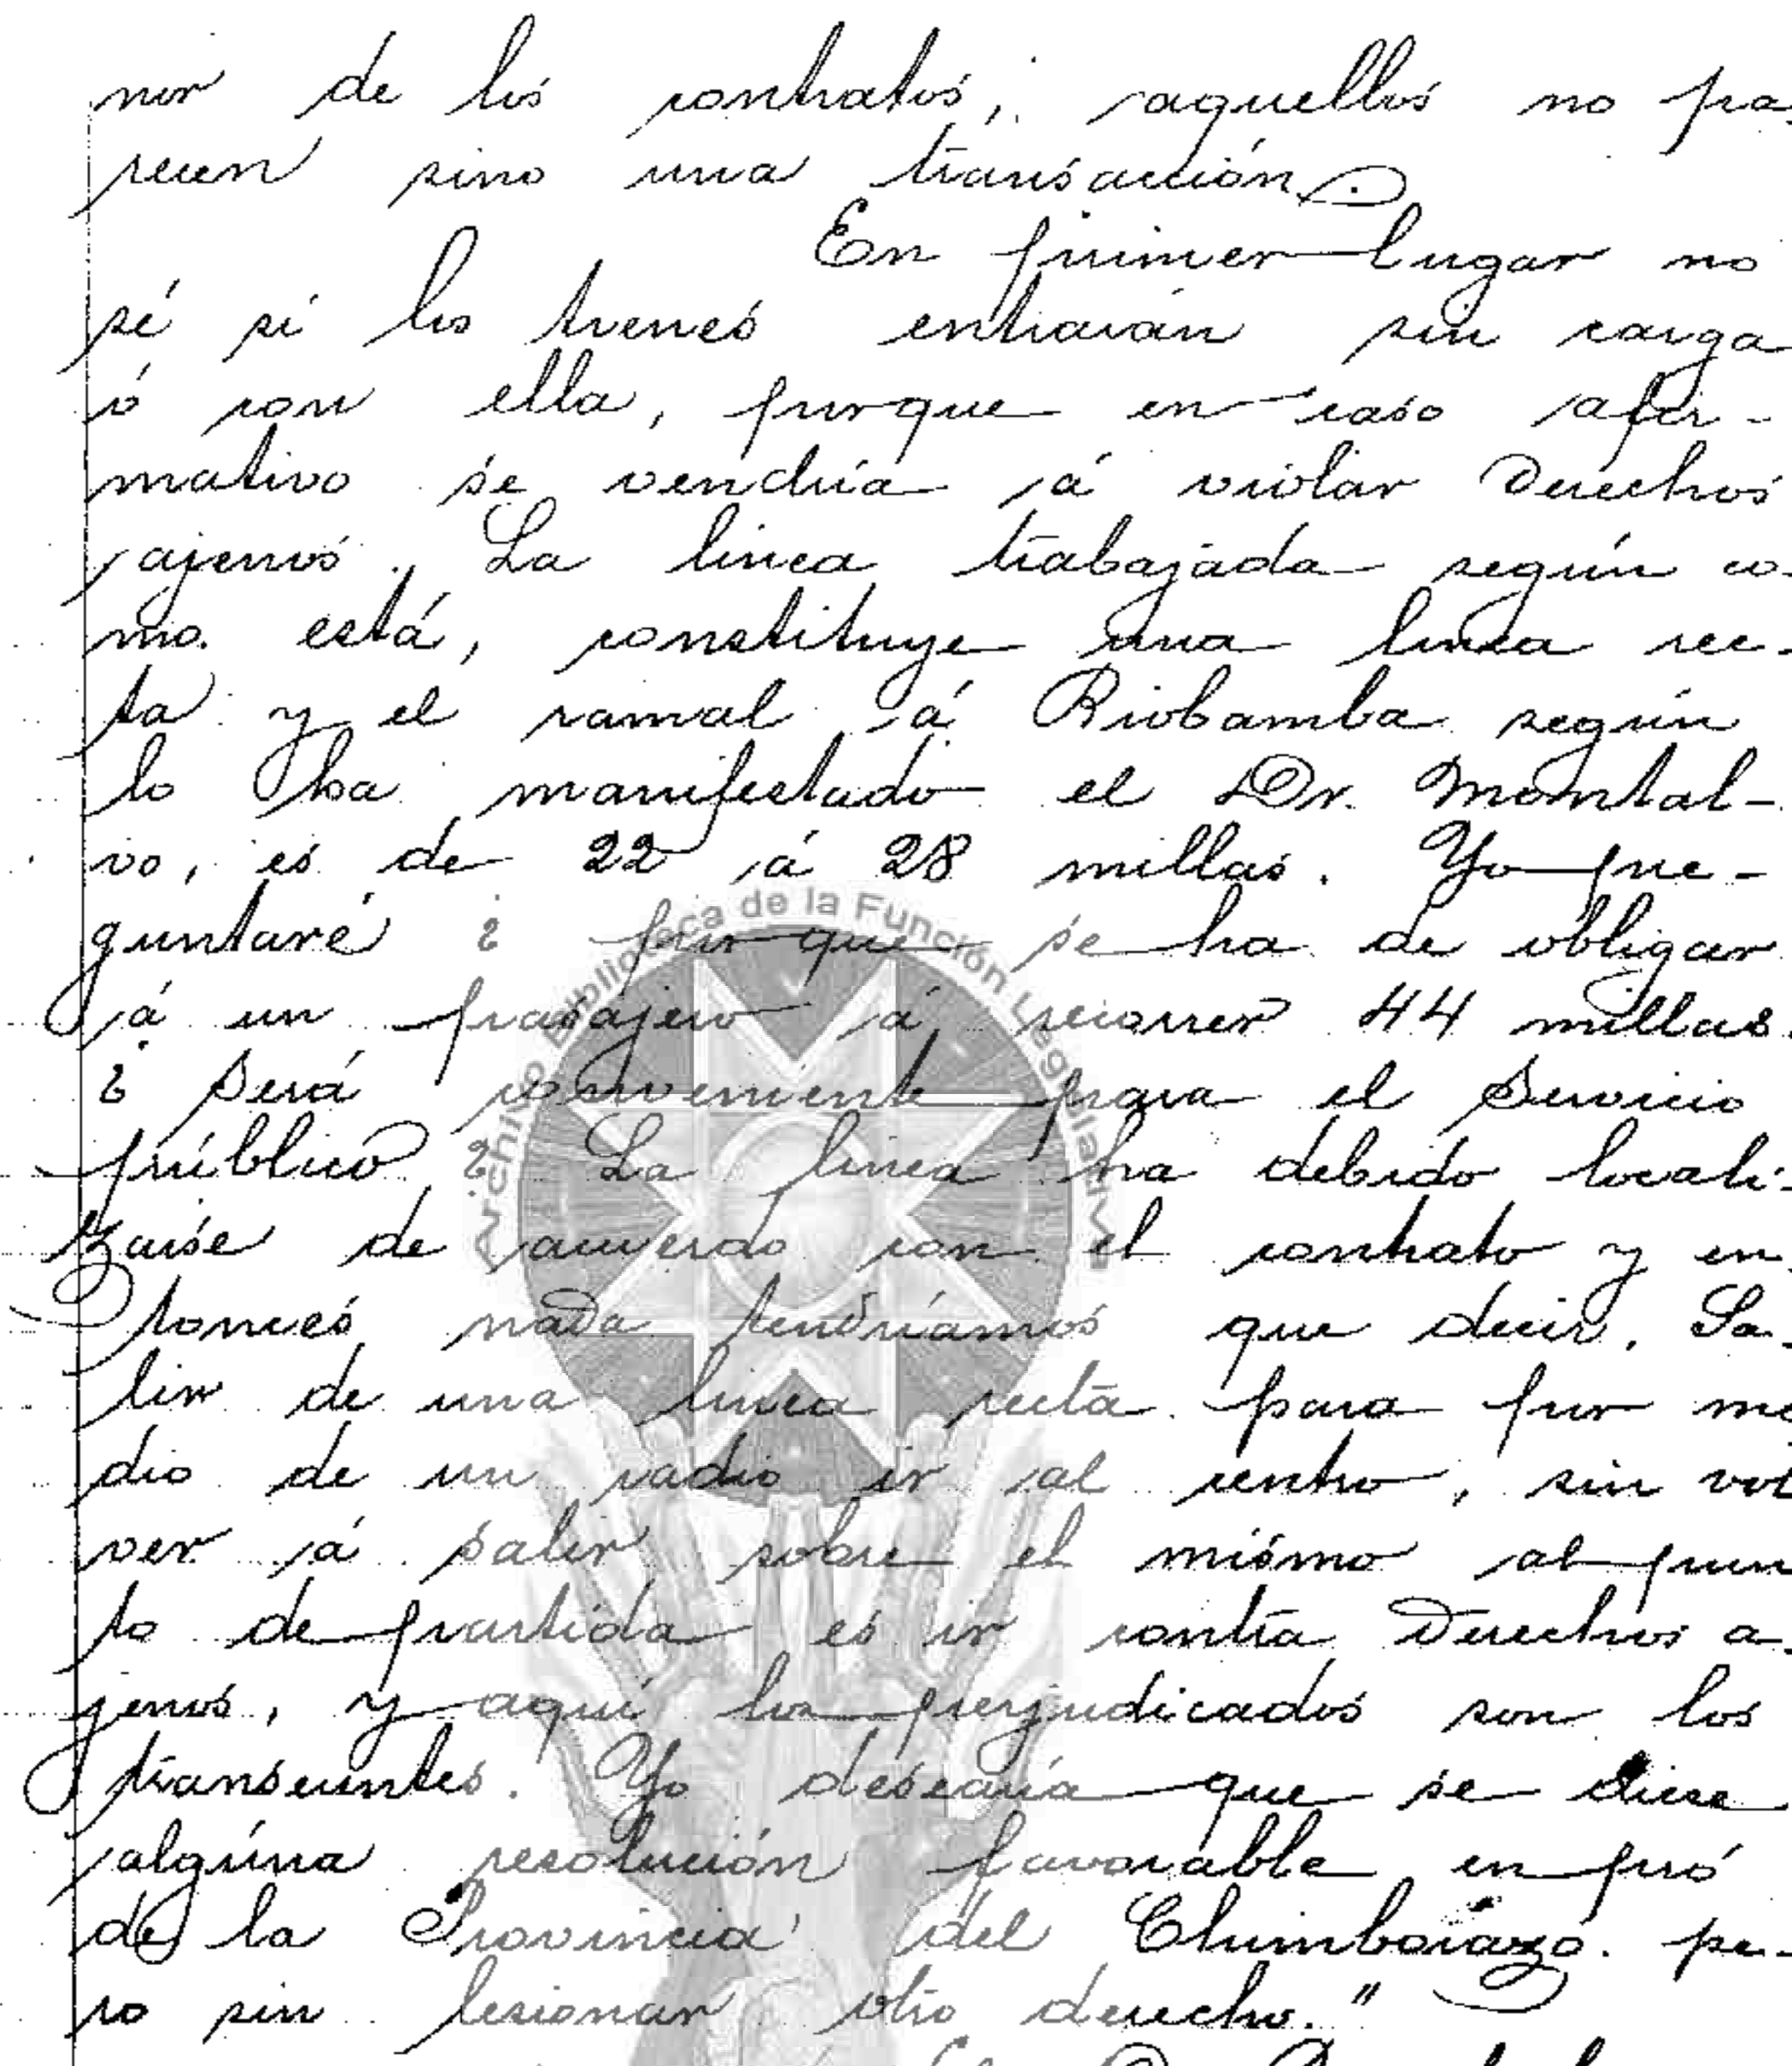 nor de los contratos, aquellos no pa-
recen sino una transacción.
En primer lugar no
sé si los trenes entrarán sin carga
ó con ella, porque en caso afir-
mativo se vendría á violar Derechos
ajenos. La linea trabajada según co-
mo está, constituye una linea rec-
ta y el ramal á Riobamba según
lo ha manifestado el Dr. Montal-
vo, es de 22 á 28 millas. Yo pre-
guntaré ¿ por que se ha de obligar
á un pasajero á recorrer 44 millas.
¿ Será conveniente para el Servicio
público ? La linea ha debido locali-
zarse de acuerdo con el contrato y en-
tonces nada tendríamos que decir. Sa-
lir de una linea recta para por me
dio de un radio ir al centro, sin vol
ver á salir sobre el mismo al pun
to de partida es ir contra Derechos a-
jenos, y aquí los perjudicados son los
transeuntes. Yo desearía que se diese
algúna resolución favorable en pró
de la Provincia del Chimborazo. pe-
ro sin lesionar otro derecho."
Archivo Biblioteca de la Función Legislativa